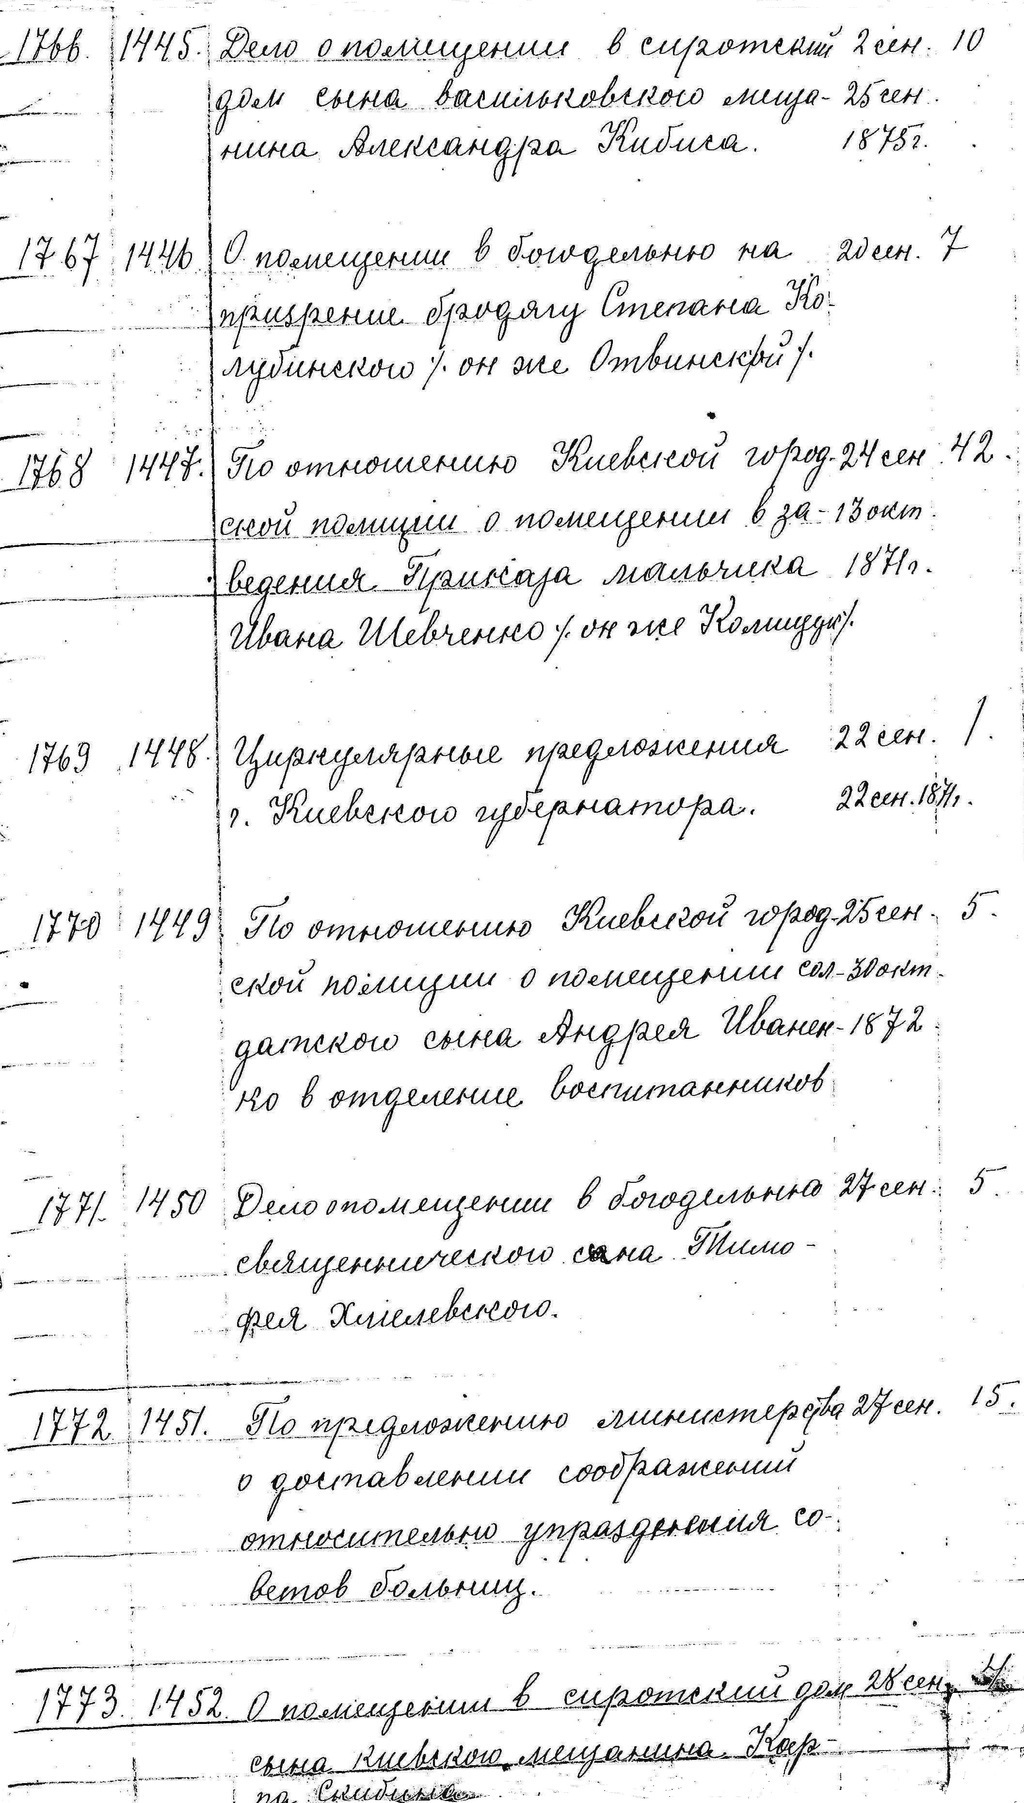 1766. 1445. Дело о помещении в сиротский 2 сен. 10
дом сына васильковского меща- 25 сен.
нина Александра Кибиса. 1875 г.
1767 1446 О помещении в богодельню на 20 сен. 7
призрение бродягу Степана Ко-
лубинского /. он же Отвинский /.
1768 1447. По отношению Киевской город- 24 сен. 42.
ской полиции о помещении в за- 13 окт.
ведения Приказа мальчика 1871 г.
Ивана Шевченко /. он же /.
1769 1448. Циркулярные предложения 22 сен. 1.
г. Киевского губернатора. 22 сен. 1871 г.
1770 1449 По отношению Киевской город- 25 сен. 5.
ской полиции о помещении сол- 30 окт.
датского сына Андрея Иванен- 1872
ко в отделение воспитанников
1771. 1450 Дело о помещении в богодельню 27 сен. 5.
священнического сына Тимо-
фея Хмелевского.
1772 1451. По предложению министерства 27 сен. 15.
о доставлении соображений
относительно упразднения со-
ветов больниц.
1773. 1452. О помещении в сиротский дом 28 сен.
сына киевского мещанина Кар-
па